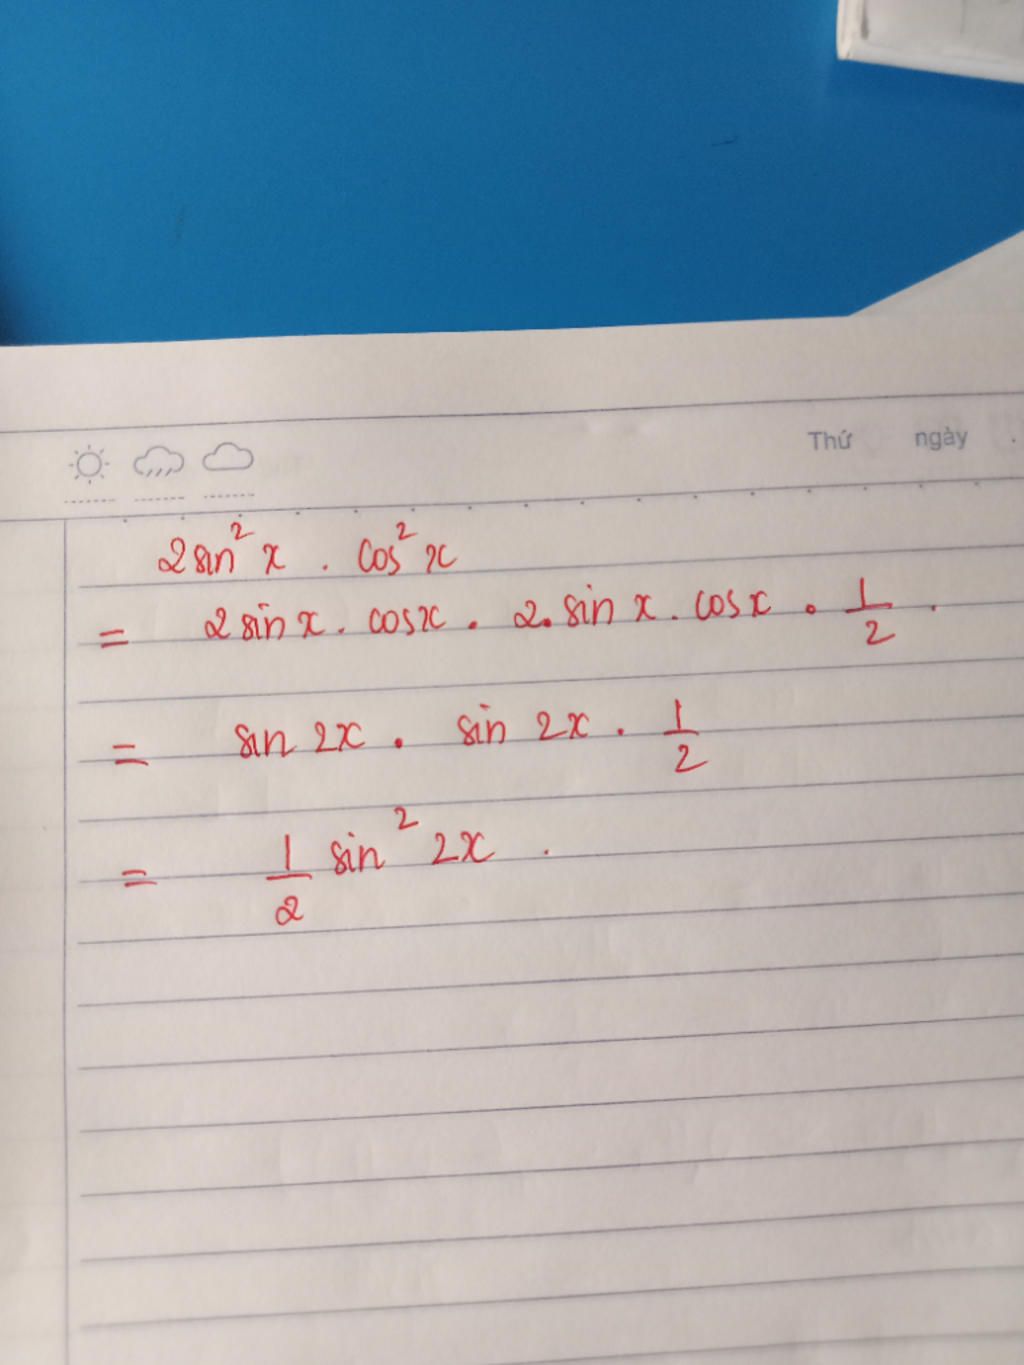 Thứ ngày .
2sin²x . cos²x
= 2sinx . cosx . 2.sinx . cosx . 1/2 .
= sin 2x . sin 2x . 1/2
= 1/2 sin² 2x .